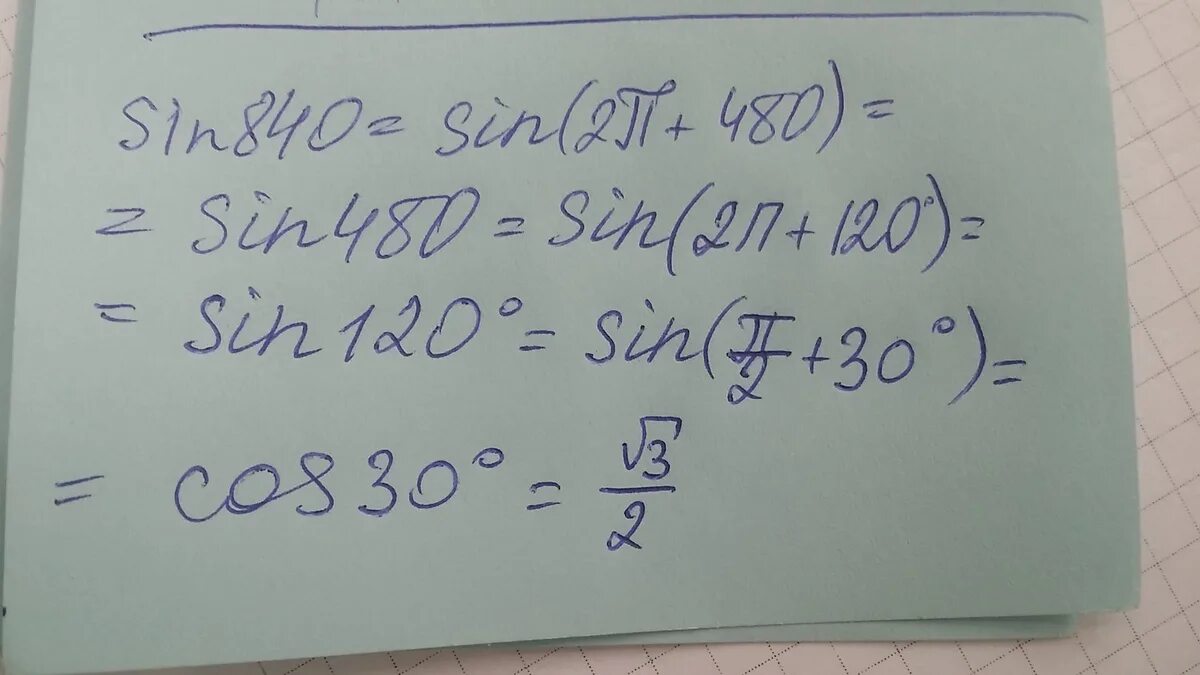 sin840 = sin(2π + 480) =
= sin480 = sin(2π + 120°) =
= sin120° = sin(π/2 + 30°) =
= cos30° = √3/2